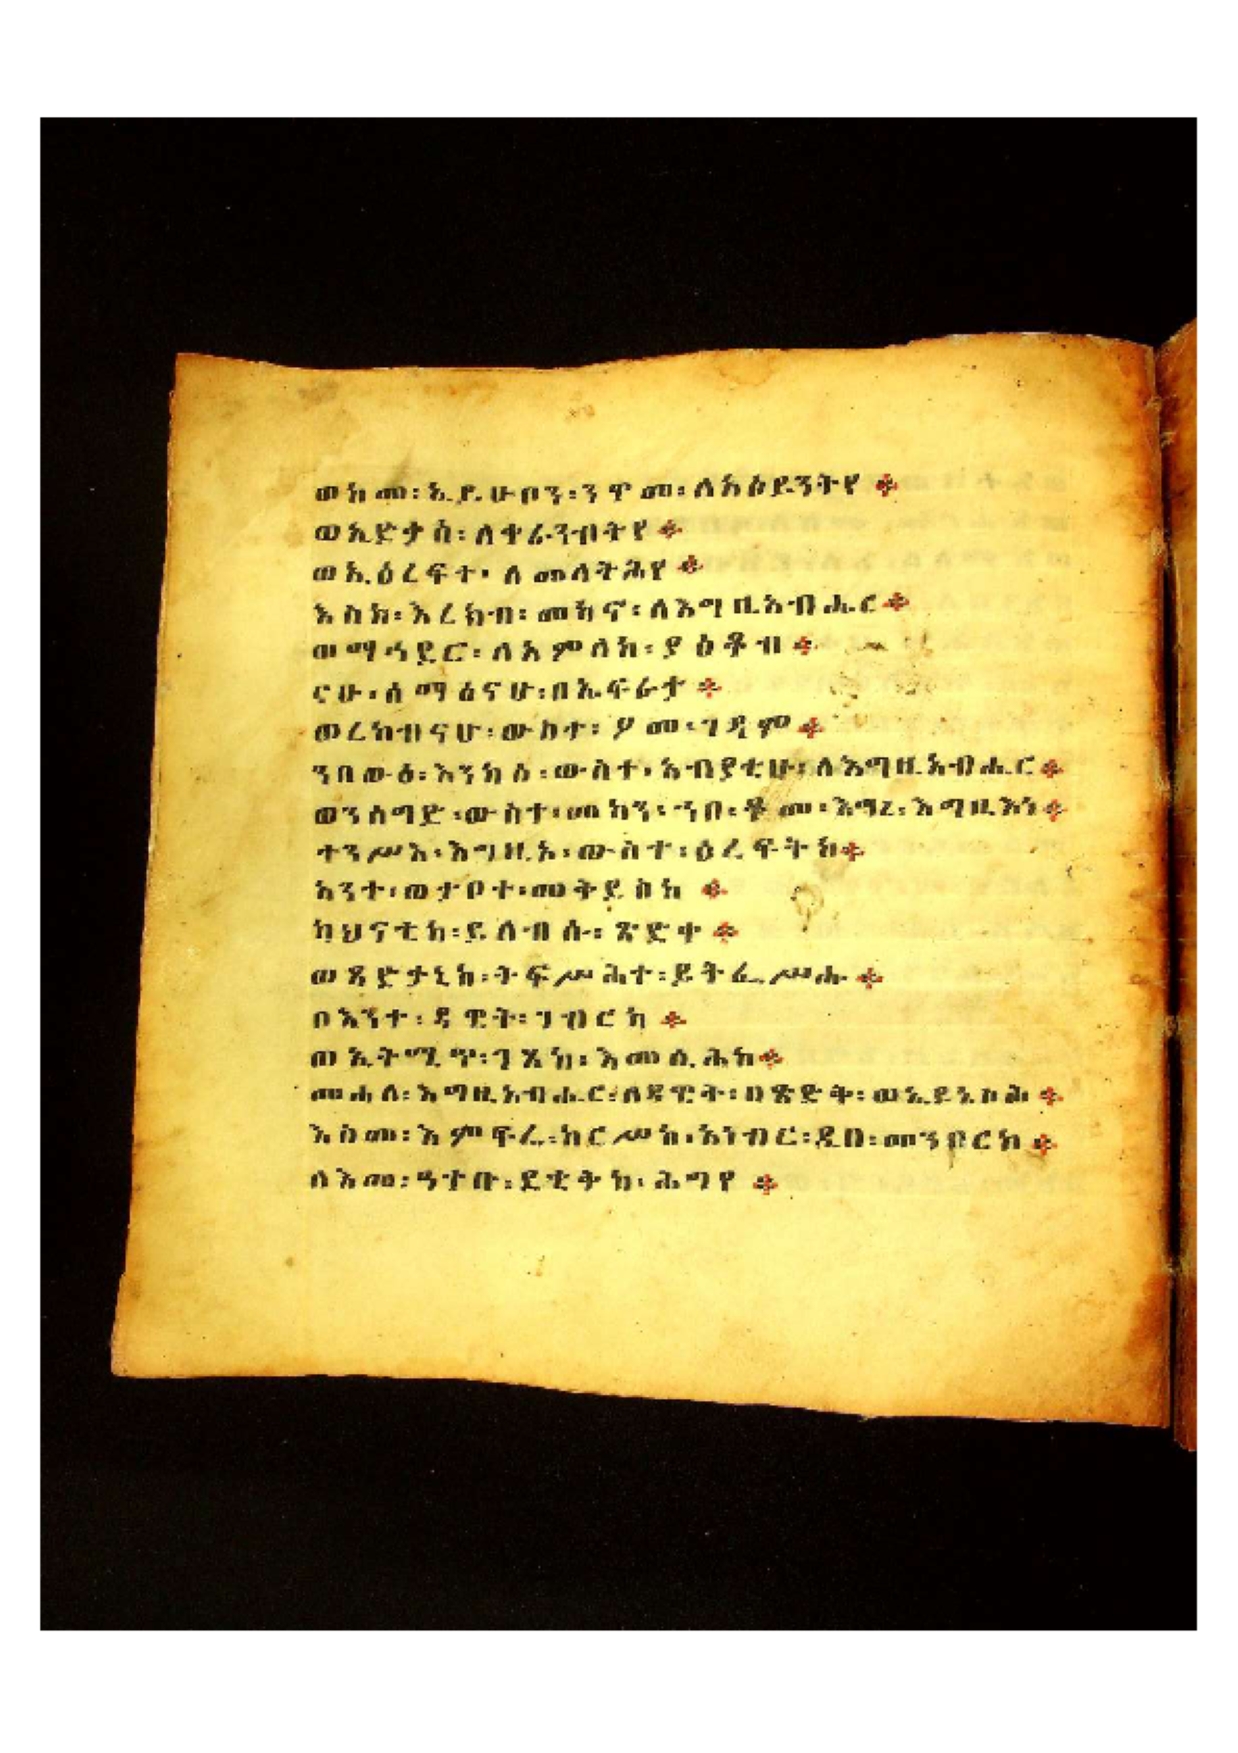 ወከመ፡ኢይሁቦን፡ንዋመ፡ለአዕይንትየ፨
ወኢድቃስ፡ለቀራንብትየ፨
ወኢዕረፍተ፡ለመላትሕየ፨
እስከ፡እረክብ፡መካኖ፡ለእግዚአብሔር፨
ወማኅደር፡ለአምላከ፡ያዕቆብ፨
ናሁ፡ሰማዕናሁ፡በኤፍራታ፨
ወረከብናሁ፡ውስተ፡ዖመ፡ገዳም፨
ንበውዕ፡እንከሰ፡ውስተ፡አብያቲሁ፡ለእግዚአብሔር፨
ወንሰግድ፡ውስተ፡መካን፡ኀበ፡ቆመ፡እግረ፡እግዚእነ፨
ተንሥእ፡እግዚኦ፡ውስተ፡ዕረፍትከ፨
አንተ፡ወታቦተ፡መቅደስከ፨
ካህናቲከ፡ይለብሱ፡ጽድቀ፨
ወጻድቃኒከ፡ትፍሥሕተ፡ይትፌሥሑ፨
በእንተ፡ዳዊት፡ገብርከ፨
ወኢትሚጥ፡ገጸከ፡እመሲሕከ፨
መሐለ፡እግዚአብሔር፡ለዳዊት፡በጽድቅ፡ወኢይኔስሕ፨
እስመ፡እምፍሬ፡ከርሥከ፡አነብር፡ዲበ፡መንበርከ፨
ለእመ፡ዓቀቡ፡ደቂቅከ፡ሕግየ፨